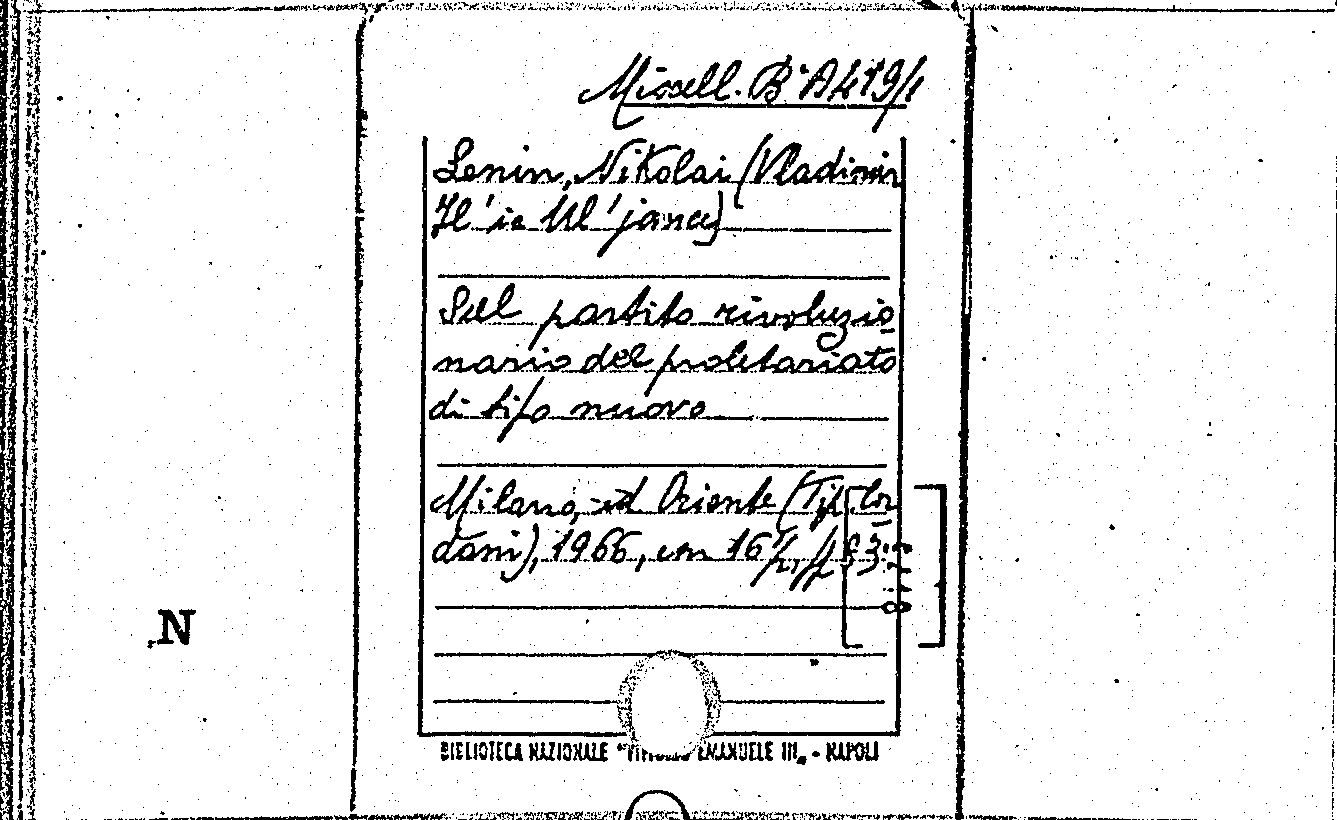 Miscell. B. A 419/1
Lenin, Nikolai (Vladimir
Il'ic Ul'janov)
Sul partito rivoluzio
nario del proletariato
di tipo nuovo
Milano, ed. Oriente (Tip. Lor
dani), 1966, in 16°, pp. 83.
N
BIBLIOTECA NAZIONALE "VITTORIO EMANUELE III„ - NAPOLI